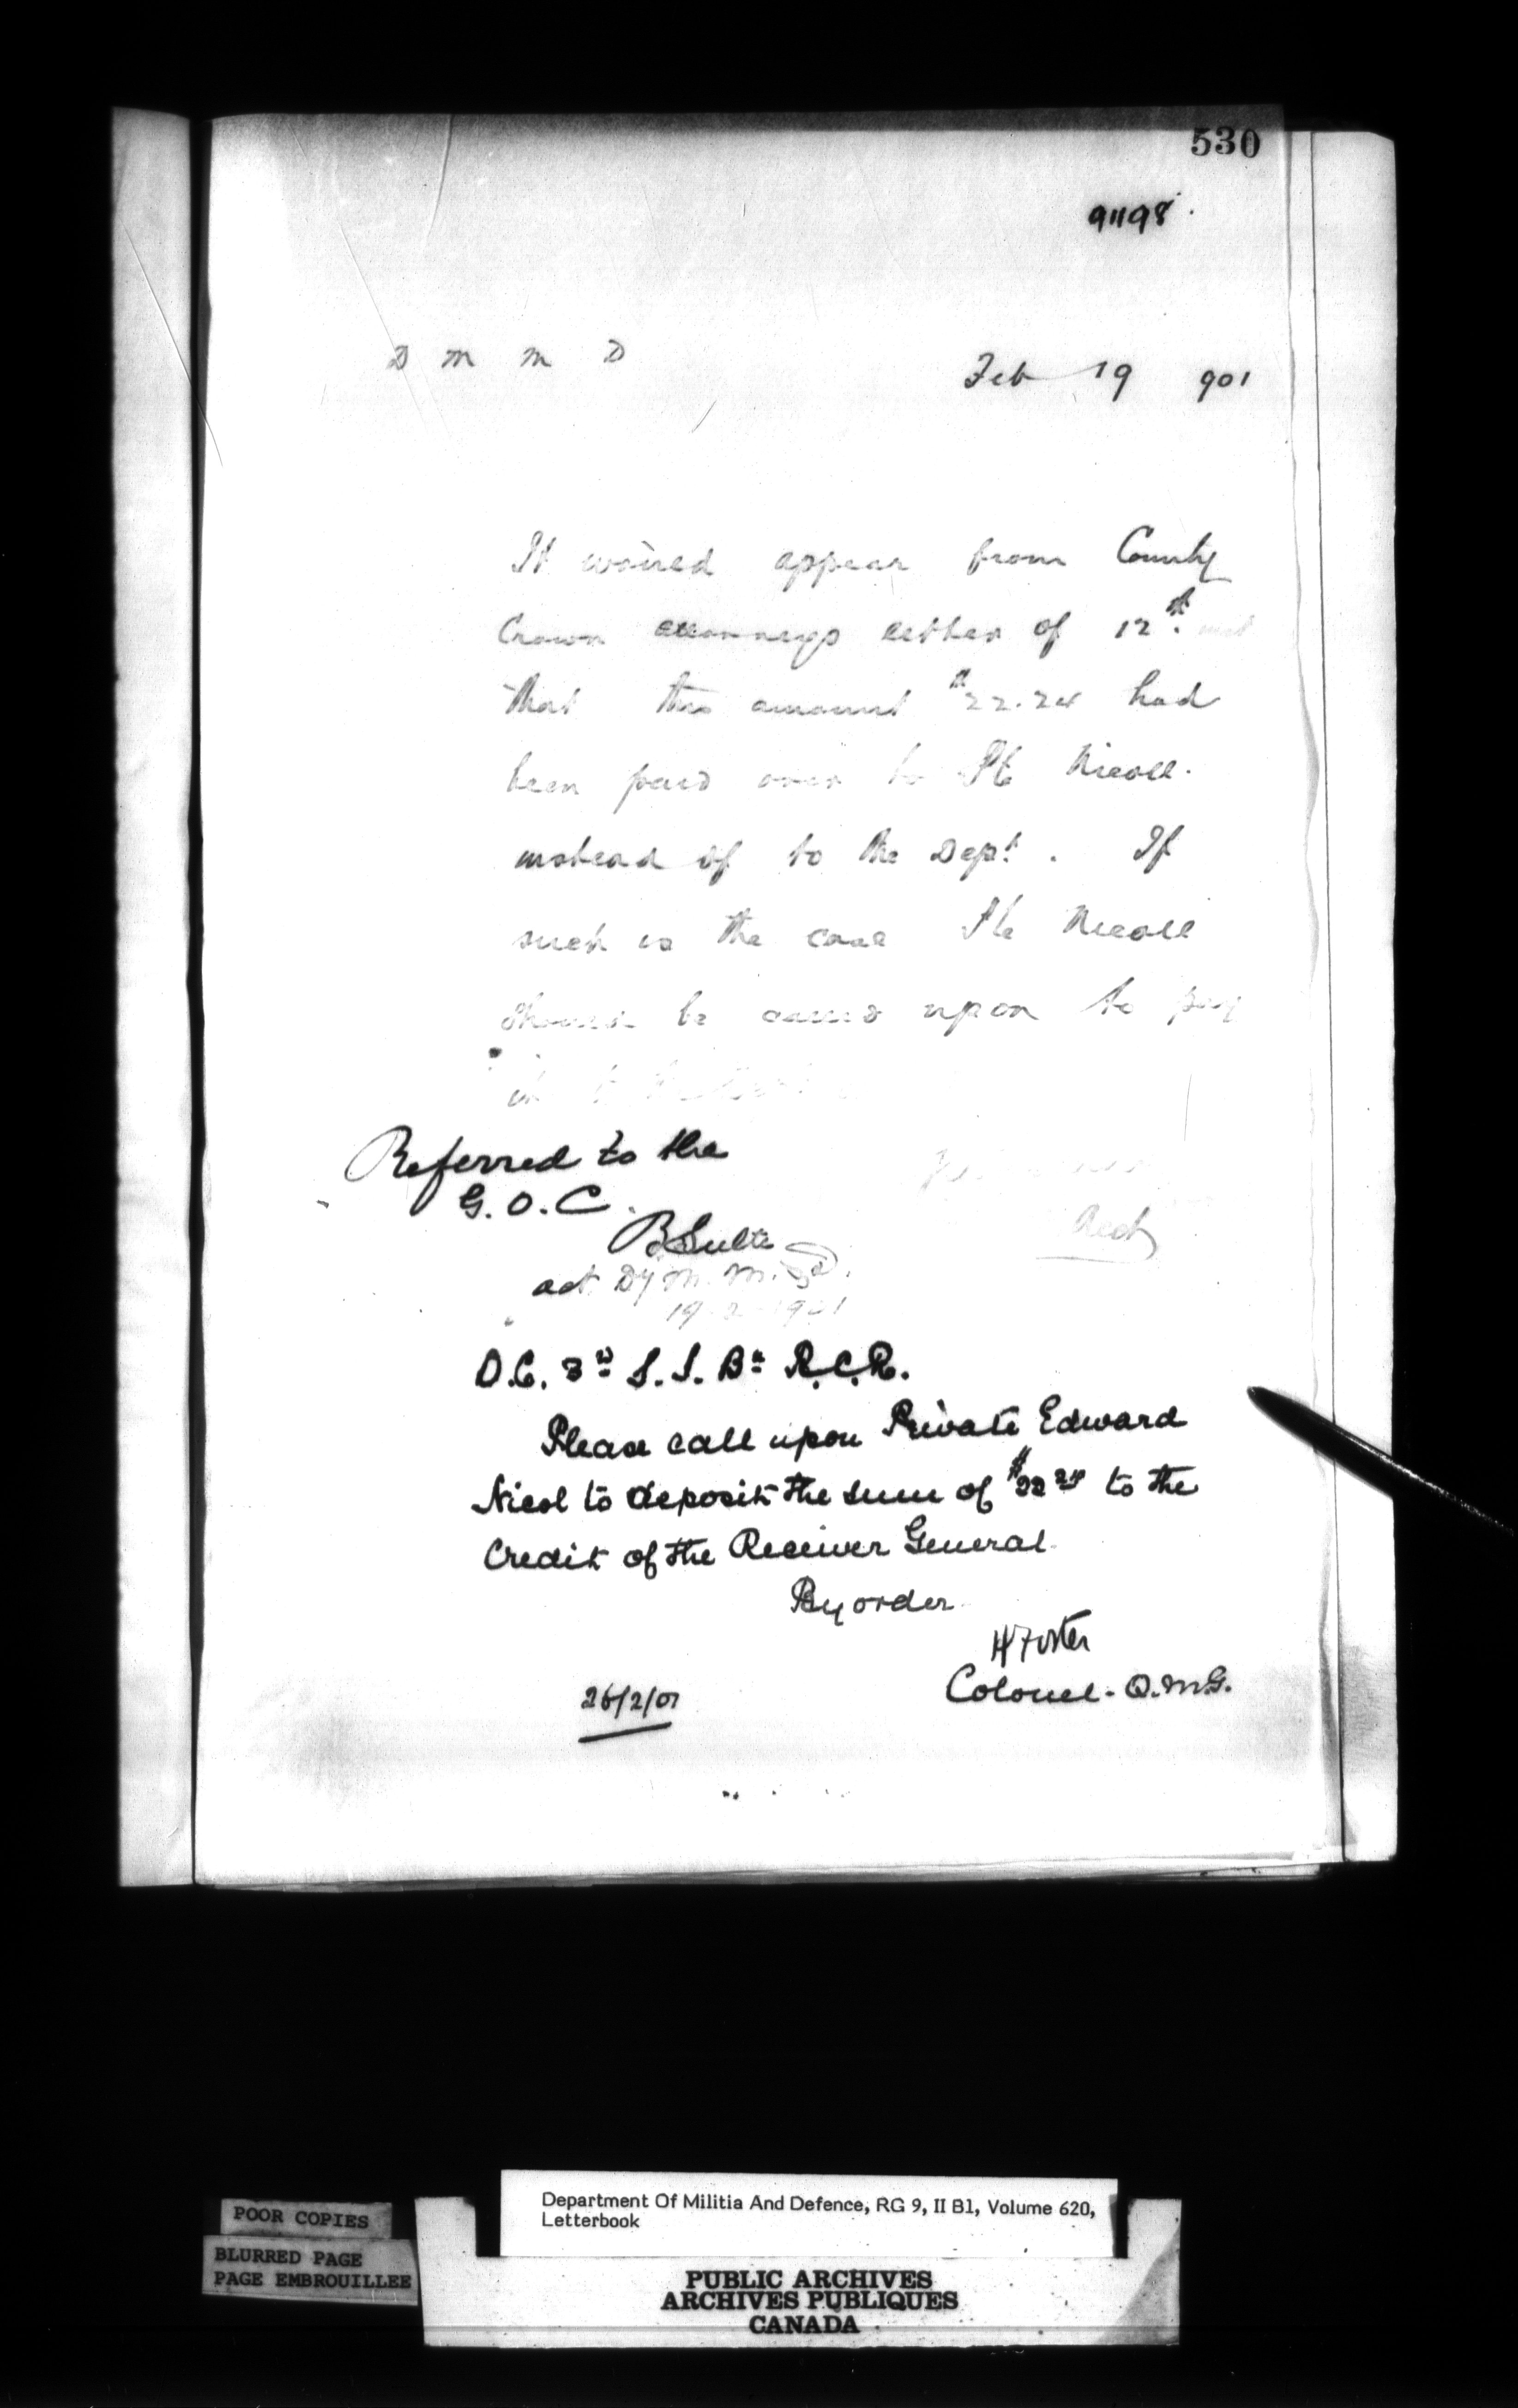 530
91198
D M M D
Feb 19 901
It would appear from County
Crown attorneys letter of 12th inst
that the amount $22.24 had
been paid over to Pte Nicoll
instead of to the Dept. If
such is the case Pte Nicoll
should be called upon to pay
Referred to the
G.O.C.
BSulte
act. Dy M. M. & D.
19-2-1901
Acct
O.C. 3rd S.S. Bn R.C.R.
Please call upon Private Edward
Nicol to deposit the sum of $22 24 to the
Credit of the Receiver General
By order
H Foster
Colonel - Q.M.G.
26/2/01
POOR COPIES
BLURRED PAGE
PAGE EMBROUILLEE
Department Of Militia And Defence, RG 9, II B1, Volume 620,
Letterbook
PUBLIC ARCHIVES
ARCHIVES PUBLIQUES
CANADA